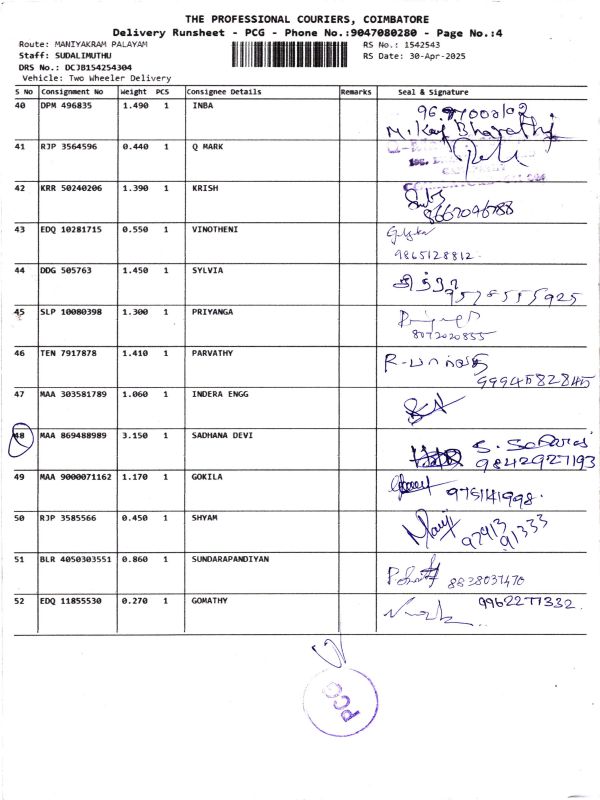 THE PROFESSIONAL COURIERS, COIMBATORE
Delivery Runsheet - PCG - Phone No.:9047080280 - Page No.:4
Route: MANIYAKRAM PALAYAM RS No.: 1542543
Staff: SUDALIMUTHU RS Date: 30-Apr-2025
DRS No.: DCJB154254304
Vehicle: Two Wheeler Delivery
S No Consignment No Weight PCS Consignee Details Remarks Seal & Signature
40 DPM 496835 1.490 1 INBA
Bharathi
41 RJP 3564596 0.440 1 Q MARK
42 KRR 50240206 1.390 1 KRISH
8667046788
43 EDQ 10281715 0.550 1 VINOTHENI
9865128812
44 DDG 505763 1.450 1 SYLVIA
9578555925
45 SLP 10080398 1.300 1 PRIYANGA
8072020855
46 TEN 7917878 1.410 1 PARVATHY
9994582845
47 MAA 303581789 1.060 1 INDERA ENGG
48 MAA 869488989 3.150 1 SADHANA DEVI
9842927193
49 MAA 9000071162 1.170 1 GOKILA
9751141998.
50 RJP 3585566 0.450 1 SHYAM
97913
91333
51 BLR 4050303551 0.860 1 SUNDARAPANDIYAN
8838037470
52 EDQ 11855530 0.270 1 GOMATHY
9962277332.
PCG